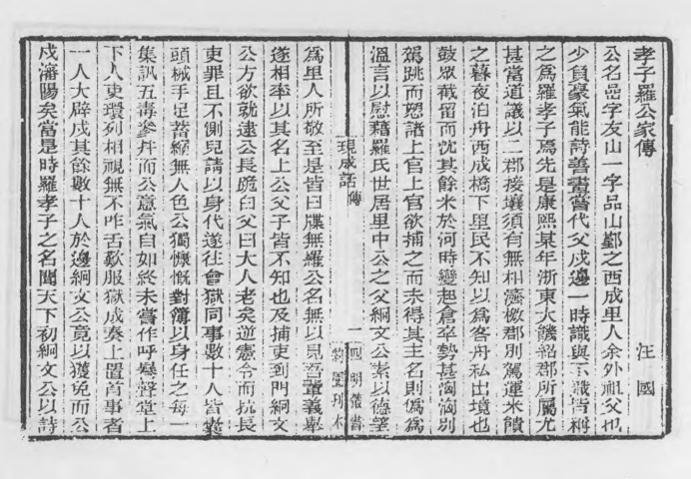 孝子羅公家傳
汪國
公名嵒字友山一字品山鄞之西成里人余外祖父也
少負豪氣能詩善書嘗代父戍邊一時識與不識皆稱
之爲羅孝子焉先是康熙某年浙東大饑紹郡所屬尤
甚當道議以二郡接壤須有無相濟檄郡別駕運米饋
之暮夜泊舟西成橋下里民不知以爲客舟私出境也
鼓眾截留而沈其餘米於河時變起倉卒勢甚洶洶別
駕跳而愬諸上官上官欲捕之而未得其主名則僞爲
溫言以慰藉羅氏世居里中公之父綱文公素以德望
現成話
傳
一
四明叢書
約園刊本
爲里人所敬至是皆曰牒無羅公名無以見吾董義舉
遂相率以其名上公父子皆不知也及捕吏到門綱文
公方欲就逮公長跪白父曰大人老矣逆憲令而抗長
吏罪且不測兒請以身代遂往會獄同事數十人皆囊
頭械手足蓄縮無人色公獨慷慨對簿以身任之每一
集訊五毒參幷而公意氣自如終未嘗作呼謈聲堂上
下人吏環列相視無不咋舌歎服獄成奏上置首事者
一人大辟戍其餘數十人於邊綱文公竟以獲免而公
戍瀋陽矣當是時羅孝子之名聞天下初綱文公以詩